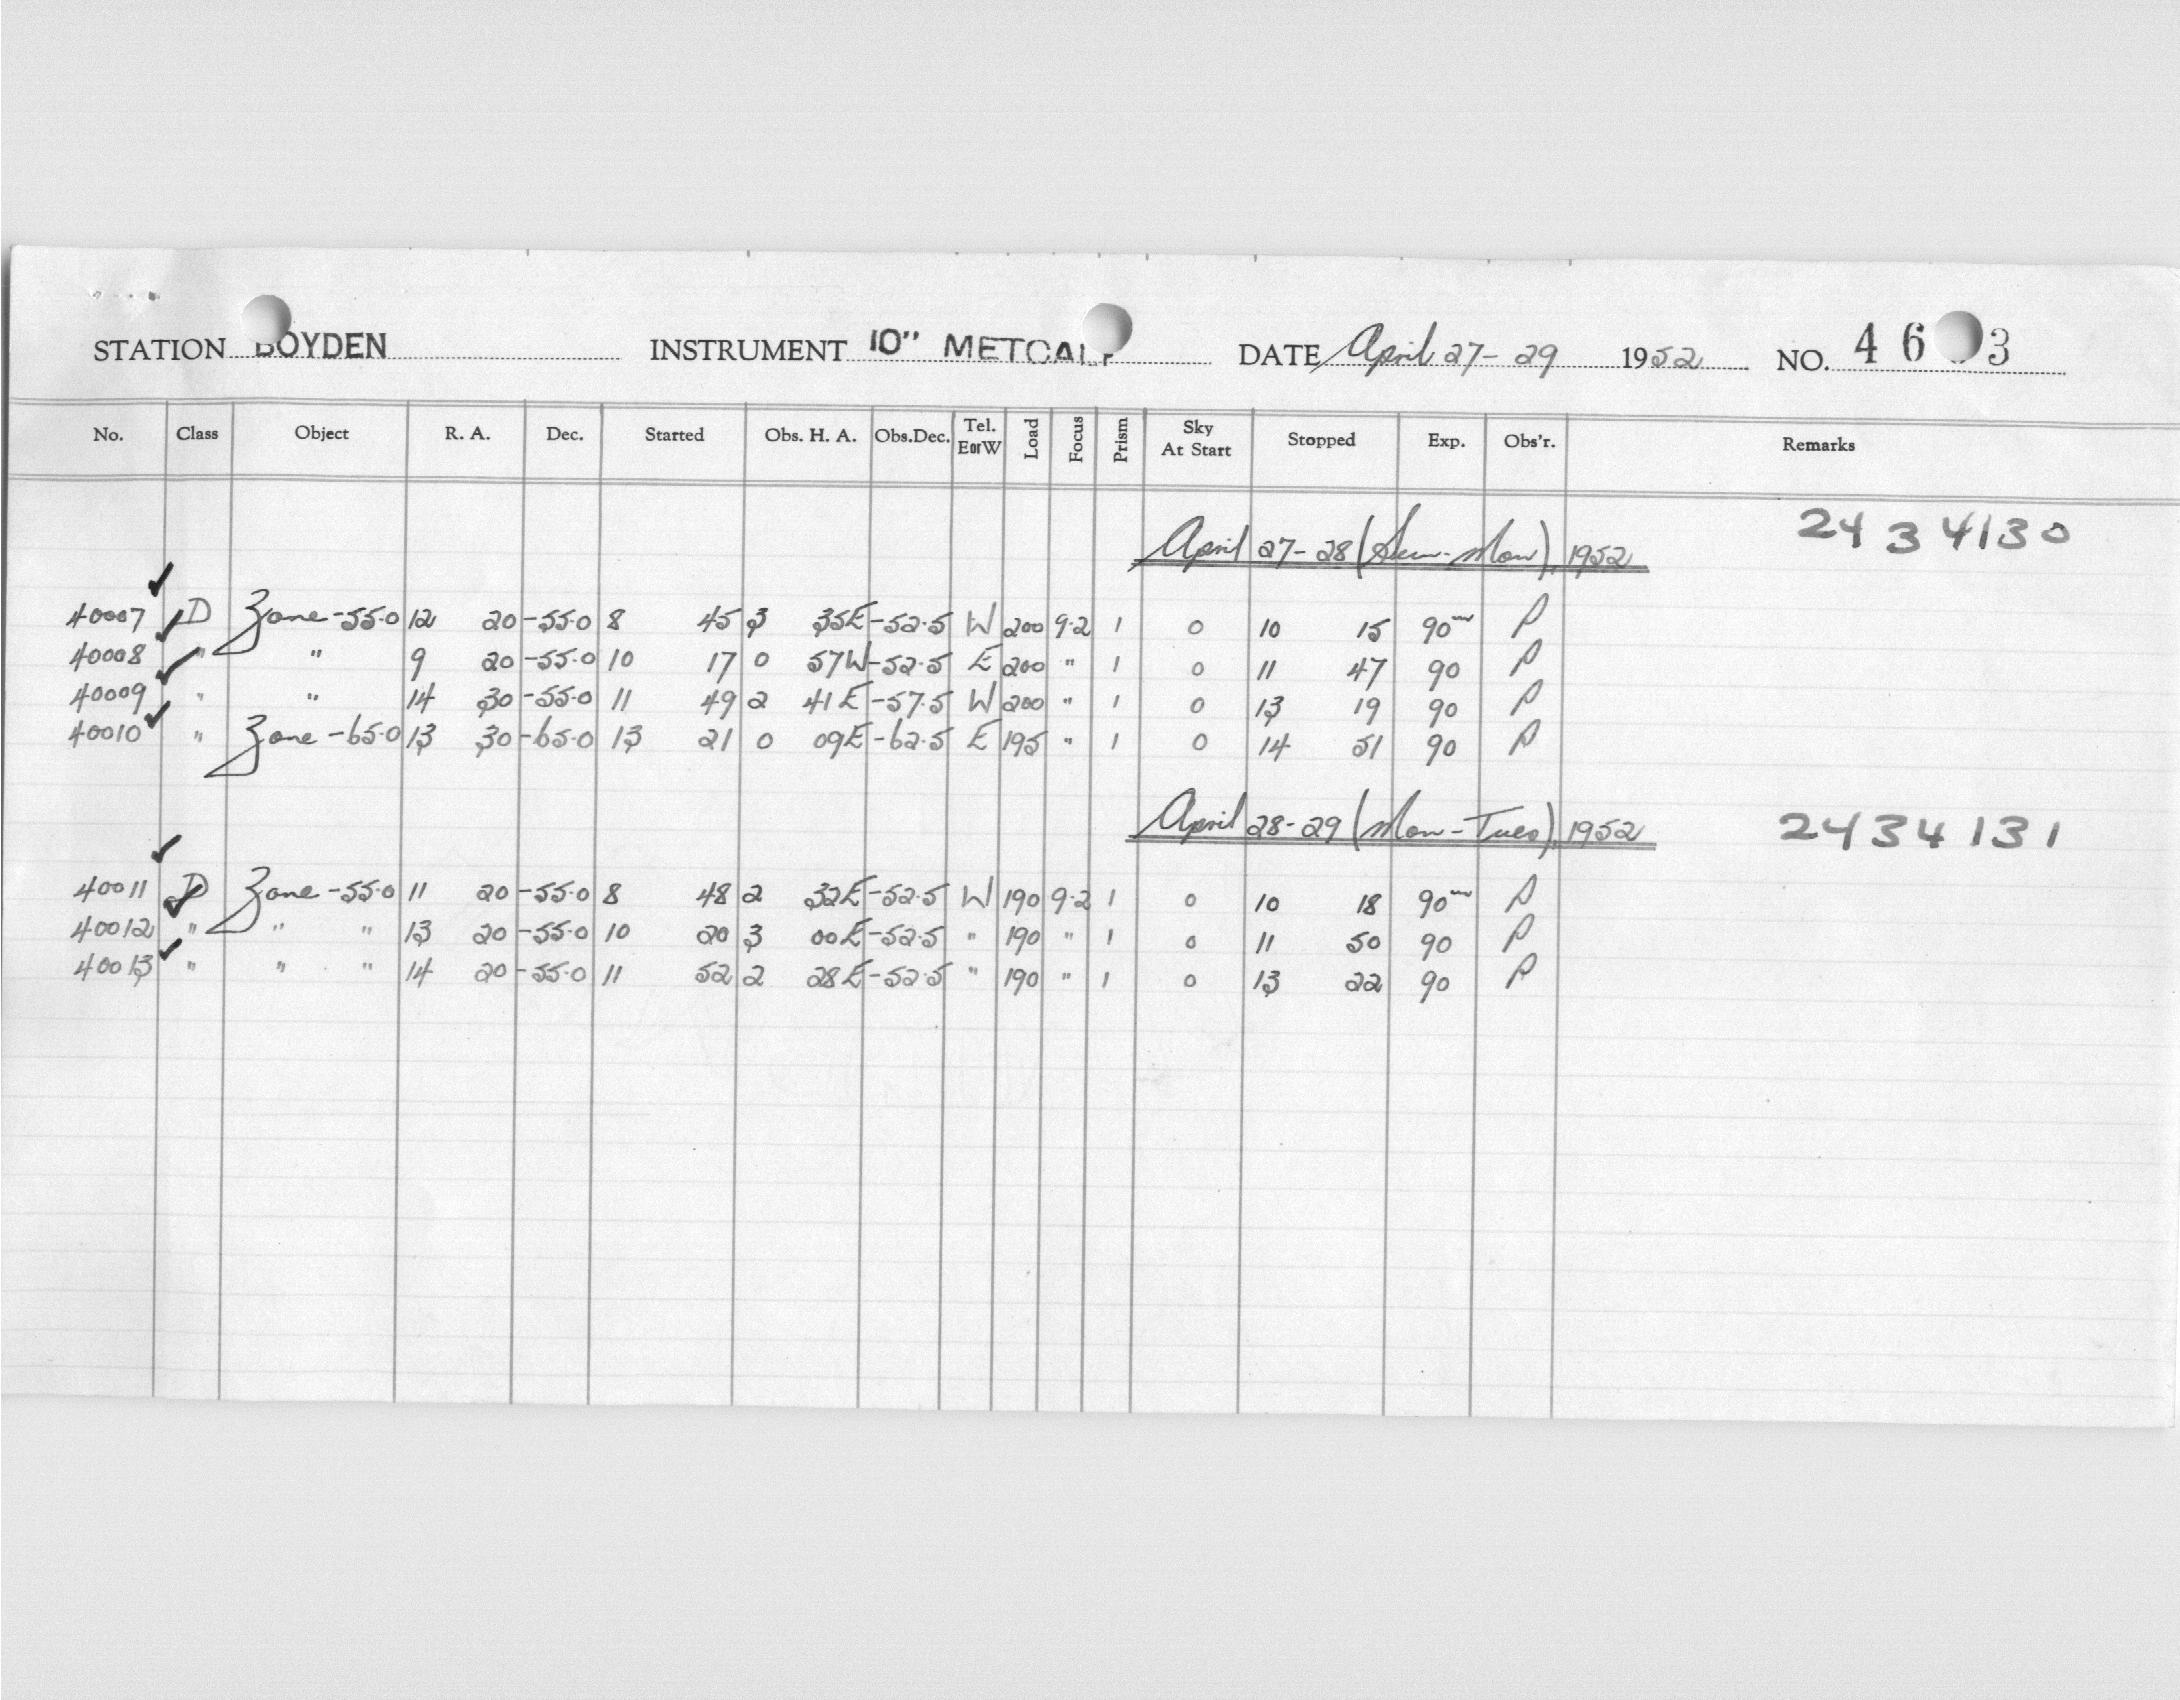 STATION BOYDEN INSTRUMENT 10" METCALF DATE April 27-29 1952 NO. 46 3
No. Class Object R. A. Dec. Started Obs. H. A. Obs.Dec. Tel. EorW Load Focus Prism Sky At Start Stopped Exp. Obs'r. Remarks
April 27-28 (Sun-Mon), 1952 2434130
40007 D Zone -55.0 12 20 -55.0 8 45 3 35E -52.5 W 200 9.2 1 0 10 15 90m P
40008 " " 9 20 -55.0 10 17 0 57W -52.5 E 200 " 1 0 11 47 90 P
40009 " " 14 30 -55.0 11 49 2 41E -57.5 W 200 " 1 0 13 19 90 P
40010 " Zone -65.0 13 30 -65.0 13 21 0 09E -62.5 E 195 " 1 0 14 51 90 P
April 28-29 (Mon-Tues), 1952 2434131
40011 D Zone -55.0 11 20 -55.0 8 48 2 32E -52.5 W 190 9.2 1 0 10 18 90m P
40012 " " " 13 20 -55.0 10 20 3 00E -52.5 " 190 " 1 0 11 50 90 P
40013 " " " 14 20 -55.0 11 52 2 28E -52.5 " 190 " 1 0 13 22 90 P